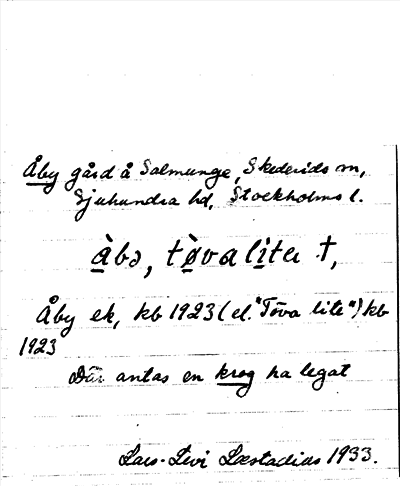 Åby gård å Salmunge, Skederids sn,
Sjuhundra hd, Stockholms l.
àbə, tøvalitɐ †,
Åby ek, kb 1923 (el. "Töva lite") kb
1923
Där antas en krog ha legat
Lars-Levi Læstadius 1933.